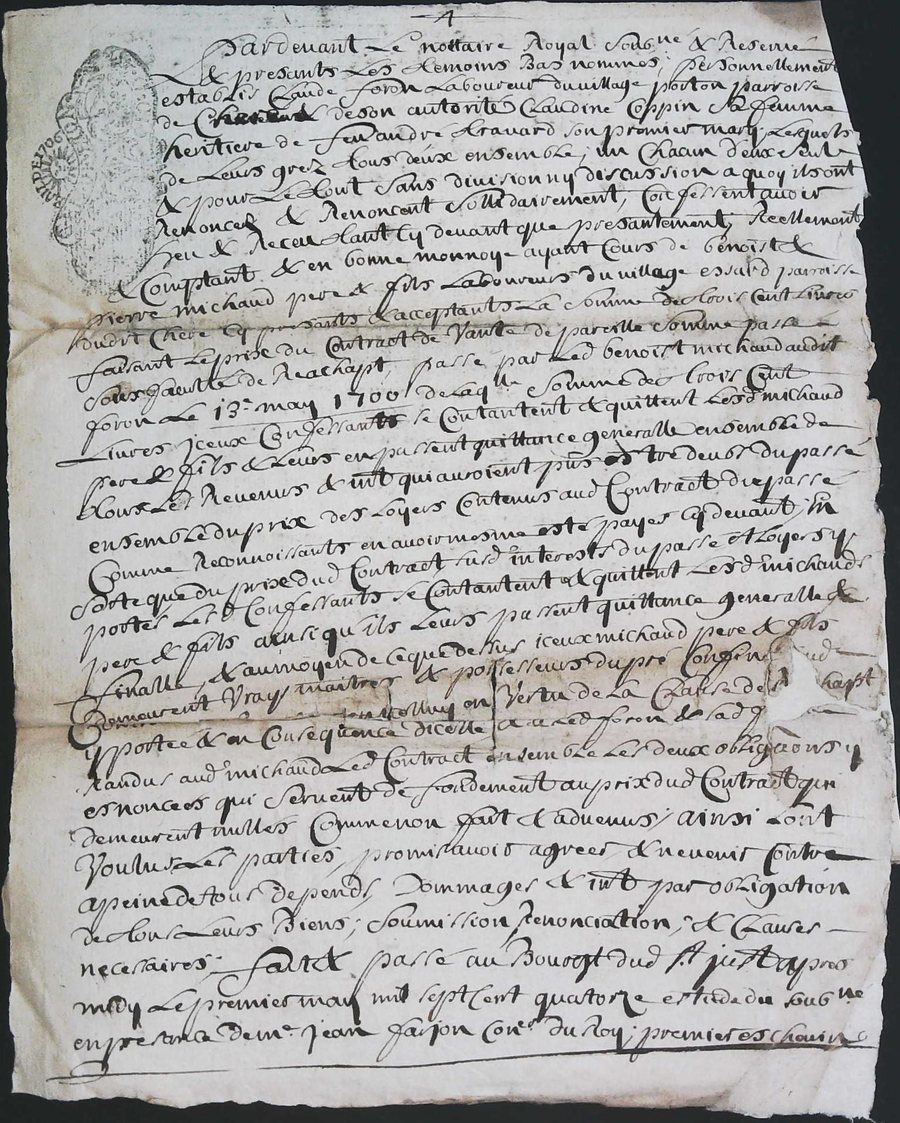 Pardevant Le nottaire Royal soubne & Reservé
& presants Les temoins Bas nommes, personnellement
establis Claude foron Laboureur du village porton parroisse
de deson autorite Claudine Coppin sa femme
heritiere de fen andre travard son premier mary, Lesquels
de Leurs grez tous deux ensemble, un Chacun d'eux seul
& pour Le tout sans division ny discussion a quoy ils ont
Renoncez & Renoncent sollidairement, Confessent avoir
heu & Receu tant Cy devant que presantement, Reellement
& Comptant & en bonne monnoye ayant Cours de benoist &
pierre michaud pere & fils Laboureurs du village essard parroisse
dudit Chere Cy presants & acceptants La somme de trois Cent Livres
faisant Le prix du Contract de Vante de pareille somme passé
sous faculté de Reachapt, passé par Led benoist michaud audit
foron Le 13e may 1700 de Laqlle somme de trois Cent
Livres iceux Confessants se Contantent & quittent Lesd michaud
pere & fils & Leurs en passent quittance generalle ensemble de
tous Les Revenus & int qui auroient pus estre deubs du passé
ensemble du prix des Loyers Contenus aud Contract du passé
Comme Reconnoissants en avoir mesme esté payes Cy devant, in
sorte que du prix dud Contract susd interests du passé et Loyers y
portés Lesd Confessants se Contantent & quittent Lesd michauds
pere & fils ainsi qu'ils Leurs passent quittance generalle &
finalle, & au moyen de ce que dessus iceux michaud pere & fils
Demeurent Vrays maitres & possesseurs du pré
en Vertu de La Clause de hapt
y portée & en Consequence dicelle a Led foron & sad f
Randus aud michaud Led Contract ensemble Les deux obligaons y
esnoncees qui servent de fondement au prix dud Contract qui
demeurent nulles Comme non fait & advenus, ainsi Lont
Voulus Les parties, promis avoir agreer & ne venir Contre
a peine de tous depends, Dommages & int par obligation
de tous Leurs Biens, soumission, Renonciation, & Clauses
necessaires; fait & passé au Bourgt dud St just apres
midy Le premier may mil sept Cent quatorze estude du soubne
en presance de me jean farjon Coner du Roy, premier eschevin